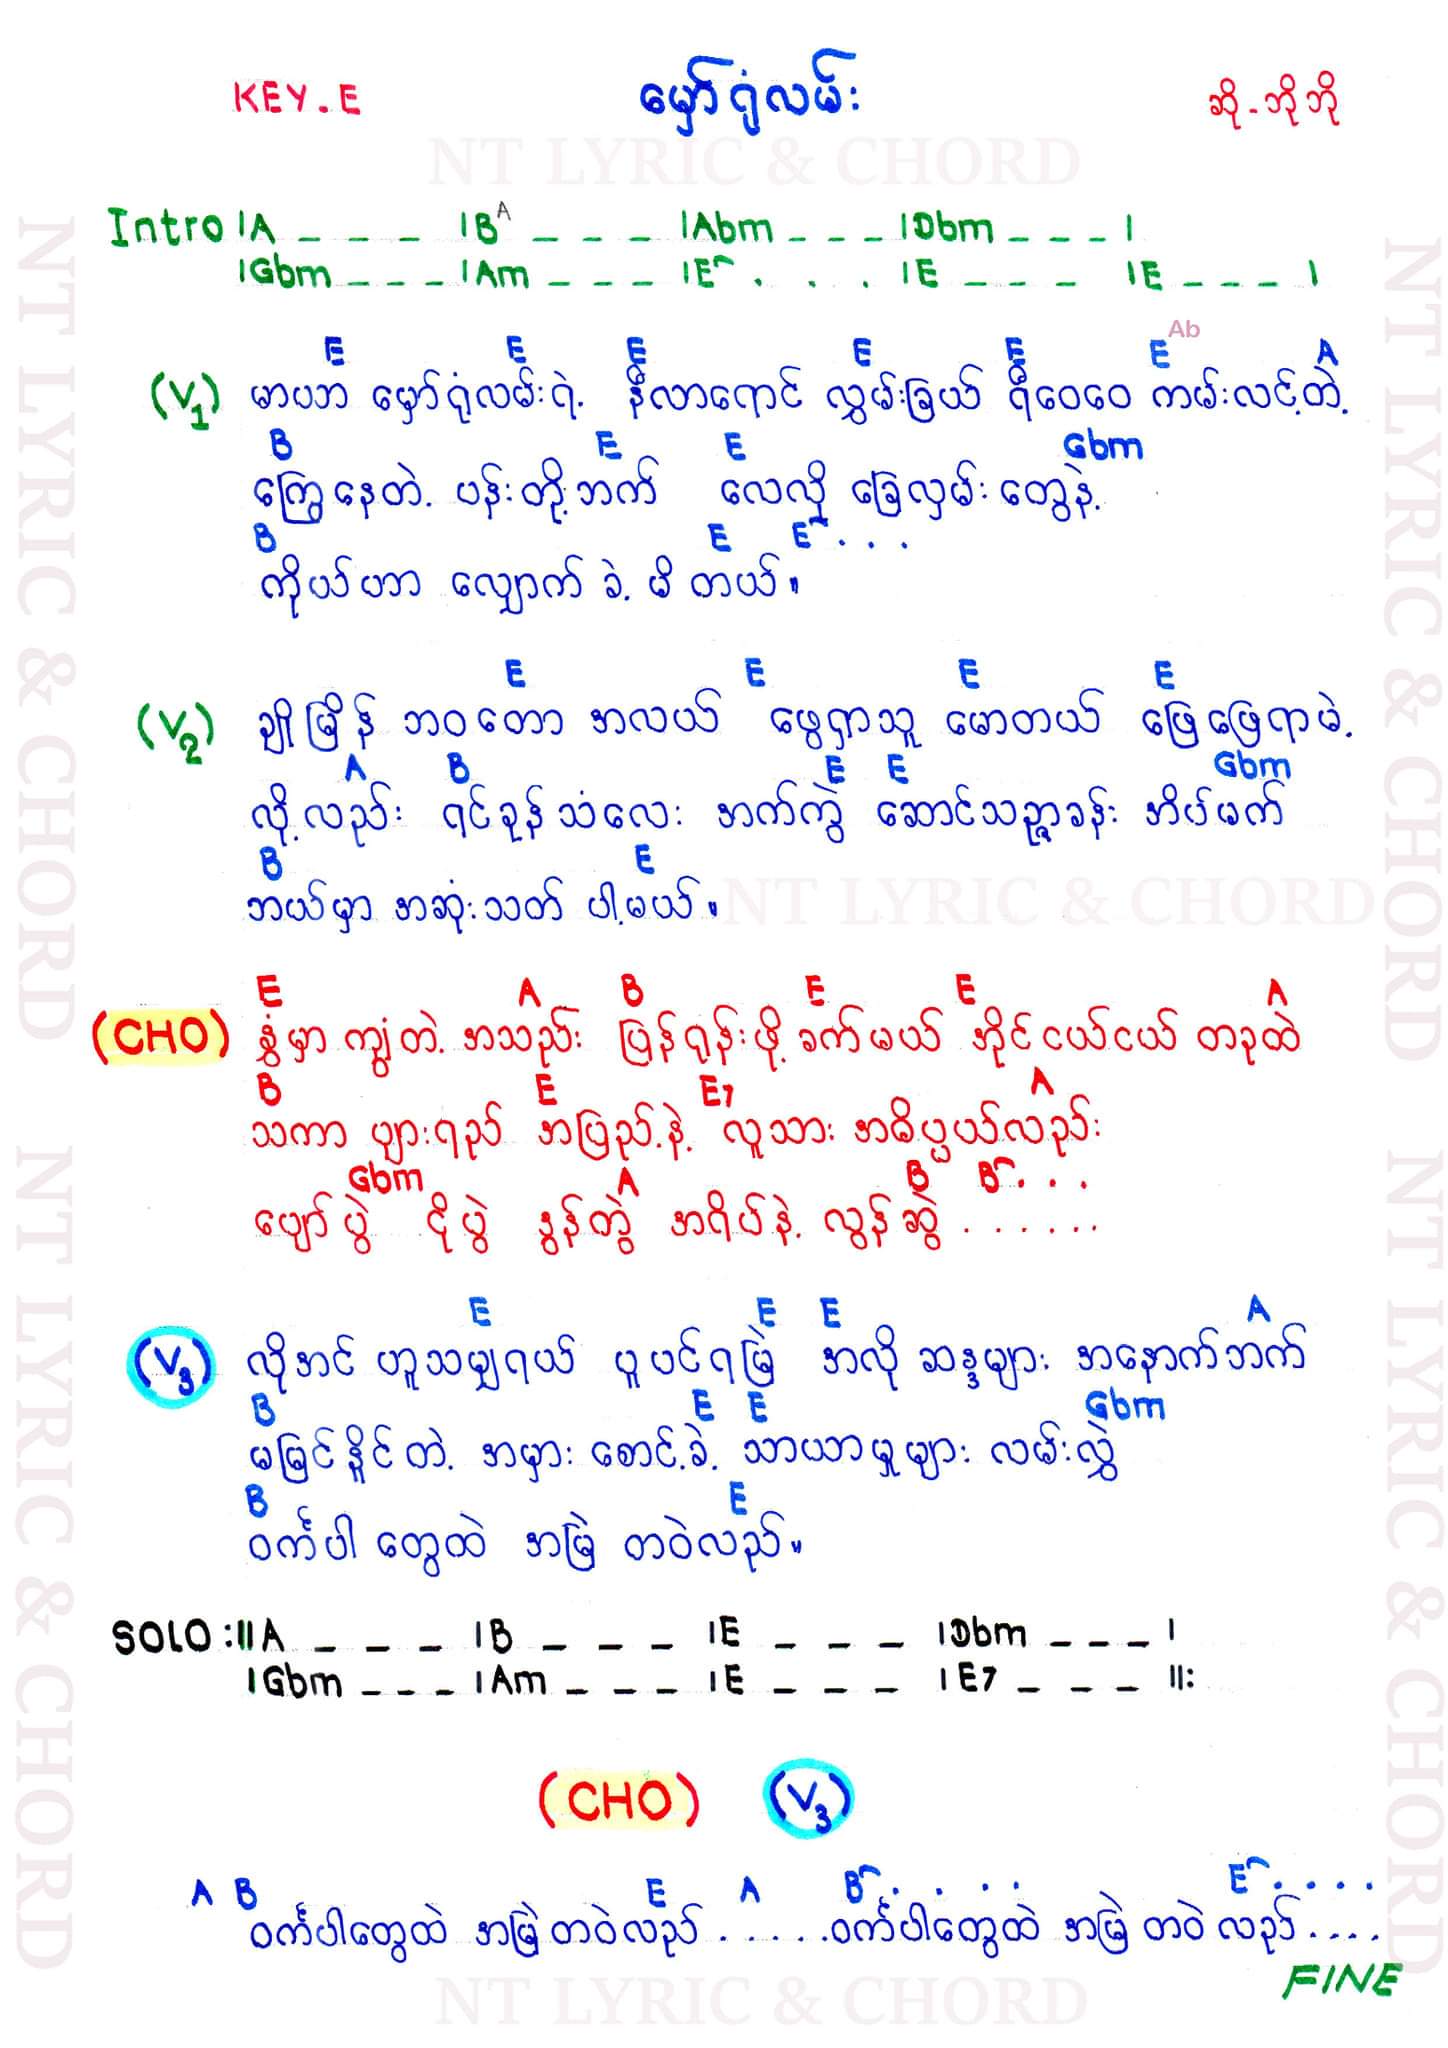 KEY.E မှော်ရုံလမ်း ဆို-ဘိုဘို
NT LYRIC & CHORD
Intro |A _ _ _ |B A _ _ _ |Abm _ _ _ |Dbm _ _ _ |
|Gbm _ _ _ |Am _ _ _ |E . . . |E _ _ _ |E _ _ _ |
E E E E E E Ab A
(V1) မာပဘ မှော်ရုံလမ်းရဲ့ နီလာရောင် လွှမ်းခြယ် ရီဝေဝေ ကမ်းလင့်တဲ့
B E E Gbm
ကြွေနေတဲ့ ပန်းတို့ဘက် လေလို ခြေလှမ်းတွေနဲ့
B E E . . .
ကိုယ်ဟာ လျှောက်ခဲ့မိတယ်။
E E E E
(V2) ချိုမြိန် ဘဝတော အလယ် ဖွေရှာသူ မောတယ် ဖြေဖြေရာမဲ့
A B E E Gbm
လို့လည်း ရင်ခုန်သံလေး အက်ကွဲ ဆောင်သညာခန်း အိပ်မက်
B E
ဘယ်မှာ အဆုံးသတ် ပါ့မယ်။
NT LYRIC & CHORD
E A B E E A
(CHO) နွံမှာ ကျွံတဲ့ အသည်း ပြန်ရုန်းဖို့ ခက်မယ် အိုင်ငယ်ငယ် တခုထဲ
B E E7 A
သကာ ပျားရည် အပြည့်နဲ့ လူသား အဓိပ္ပယ်လည်း
Gbm A B B . . .
ပျော်ပွဲ ငိုပွဲ ဒွန်တွဲ အရိပ်နဲ့ လွန်ဆွဲ . . . . . .
E E E A
(V3) လိုအင် ဟူသမျှရယ် ပူပင်ရမြဲ အလို ဆန္ဒများ အနောက်ဘက်
B E E Gbm
မမြင်နိုင်တဲ့ အမှား စောင့်ခဲ့ သာယာမှုများ လမ်းလွှဲ
B E
ဝင်္ကပါ တွေထဲ အမြဲ တဝဲလည်။
SOLO :||A _ _ _ |B _ _ _ |E _ _ _ |Dbm _ _ _ |
|Gbm _ _ _ |Am _ _ _ |E _ _ _ |E7 _ _ _ ||:
(CHO) (V3)
A B E A B . . . . E . . . .
ဝင်္ကပါတွေထဲ အမြဲတဝဲလည် . . . . . .ဝင်္ကပါတွေထဲ အမြဲ တဝဲလည် . . . .
FINE
NT LYRIC & CHORD
NT LYRIC & CHORD
NT LYRIC & CHORD
NT LYRIC & CHORD
NT LYRIC & CHORD